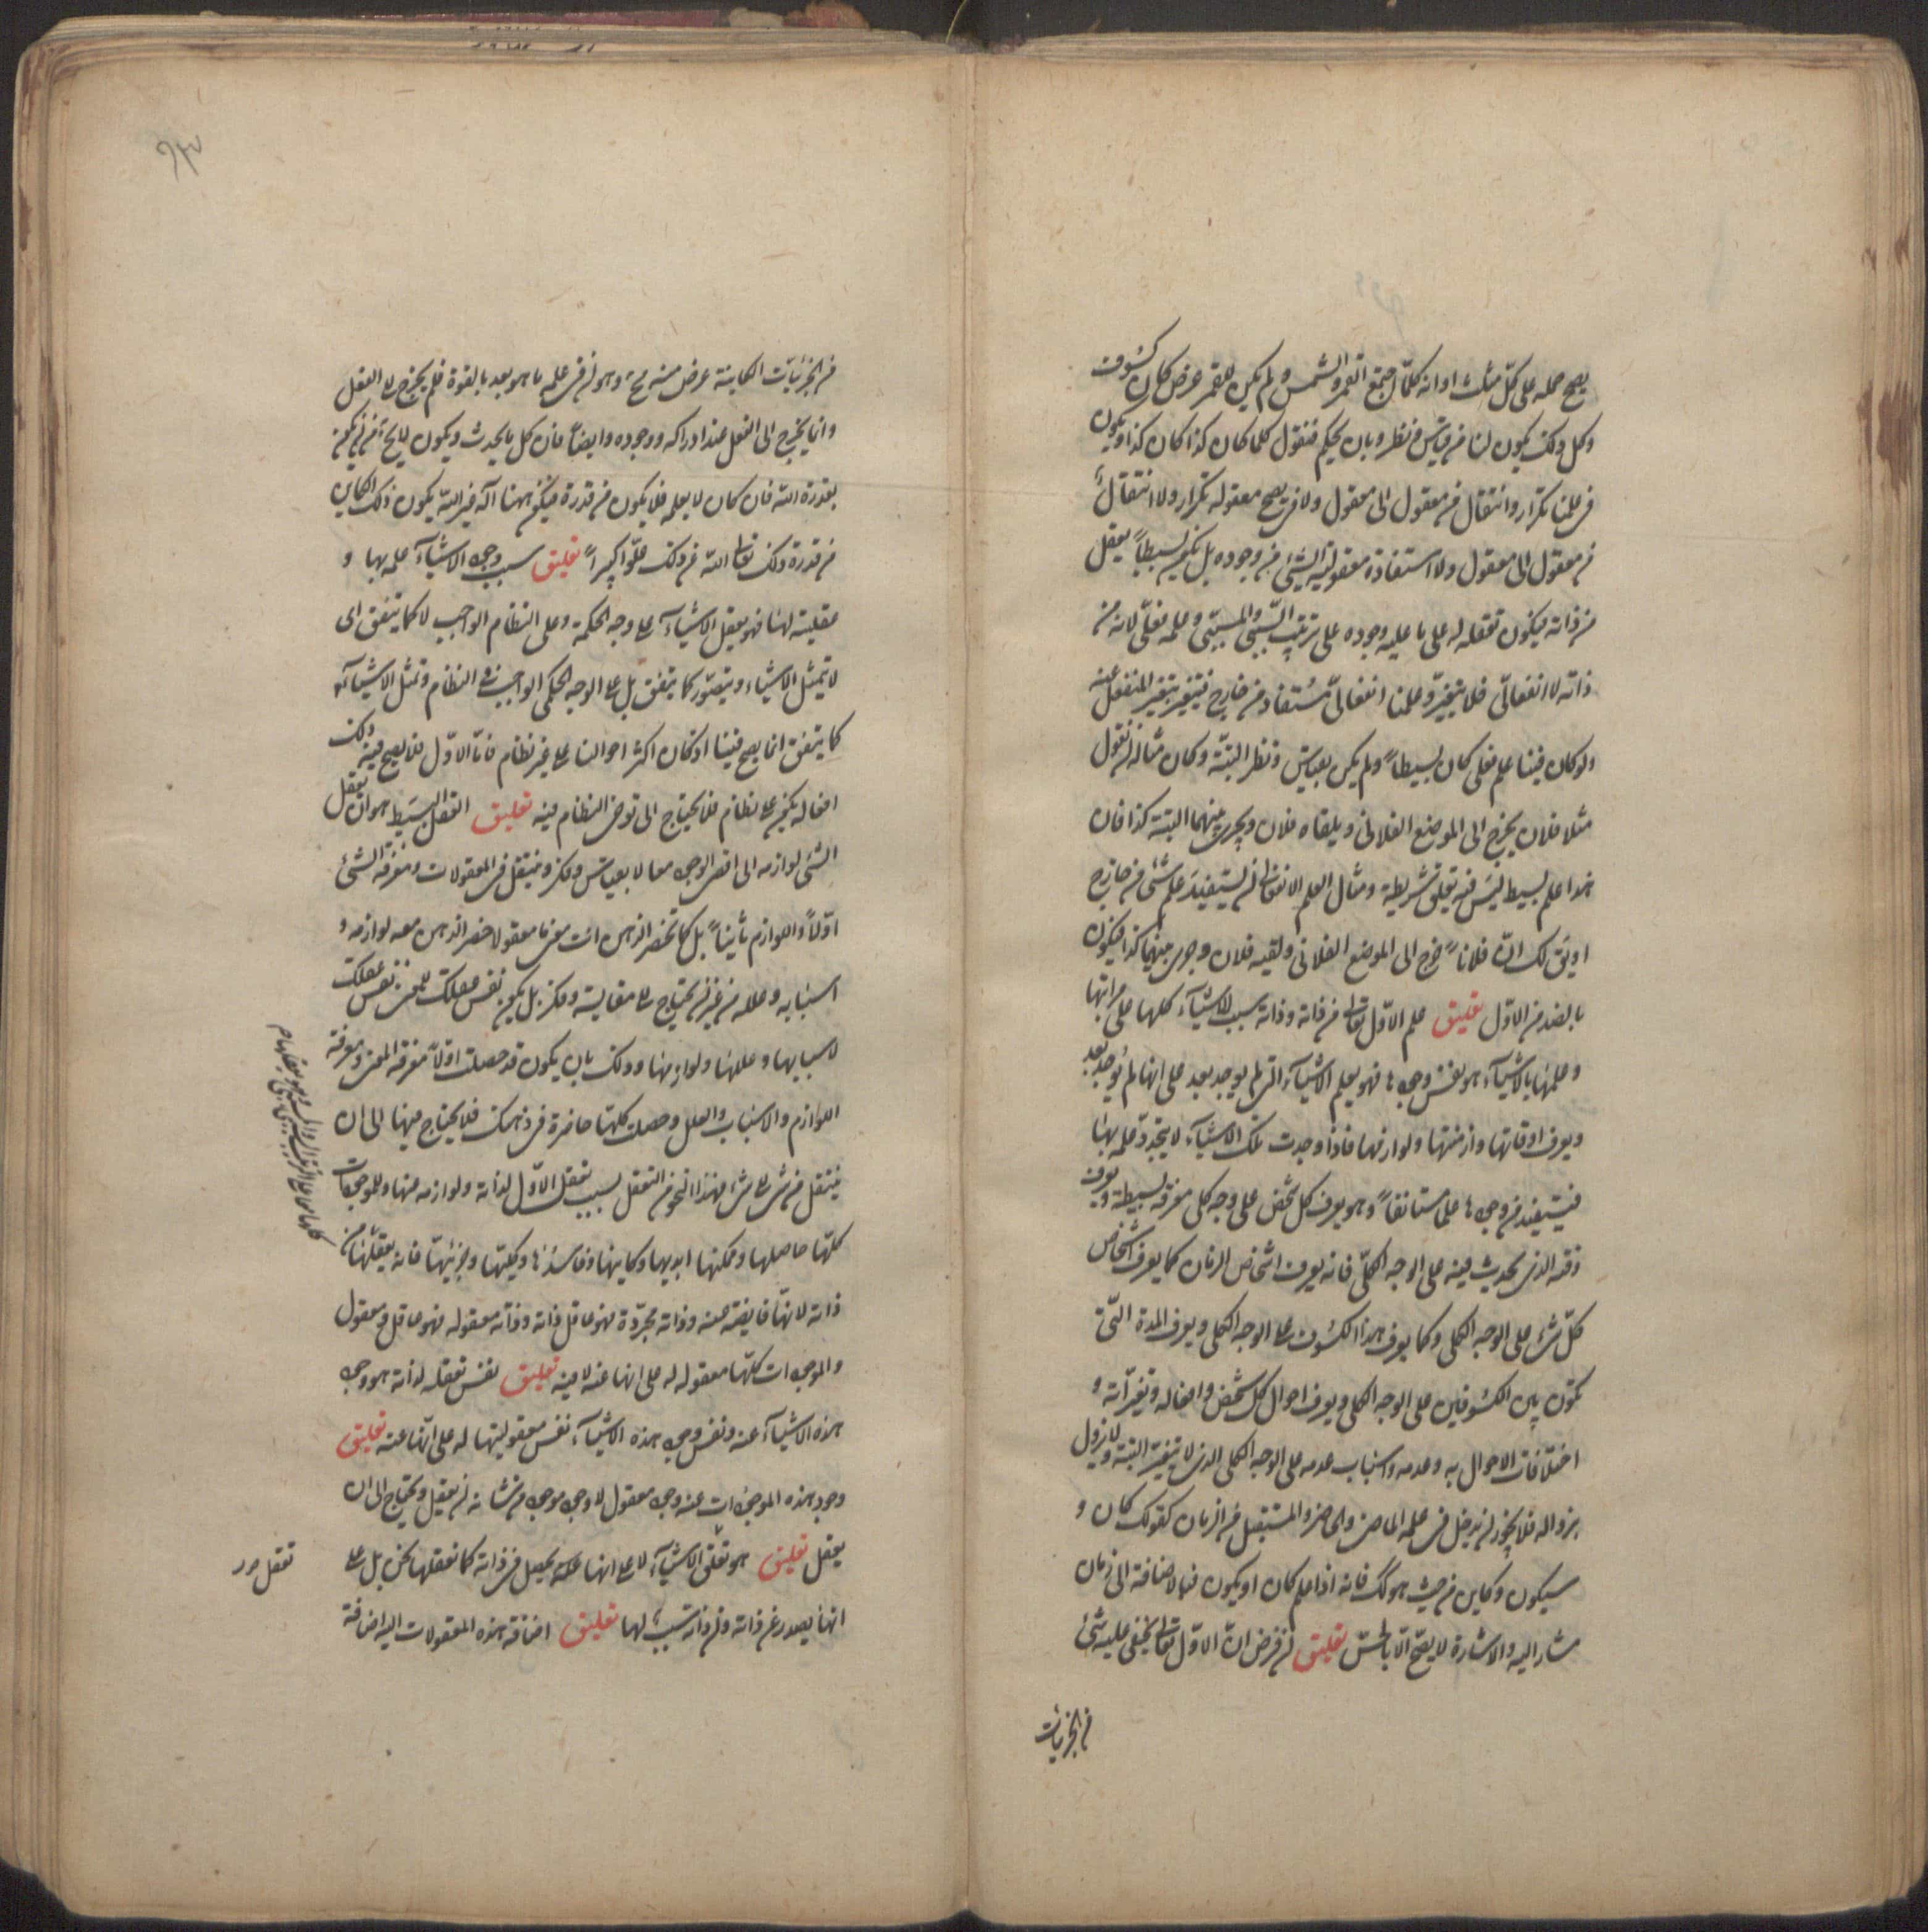 يصح حمله على كل مثلث او انه كلما اجتمع القمر والشمس ولم يكن للقمر عرض كان كسوف
وكل ذلك يكون لنا من قياس ونظر وبان يحكم فنقول كلما كان كذا كان كذا ويكون
فى علمنا تكرار وانتقال من معقول الى معقول ولا يصح معقوله تكرار ولا انتقال
من معقول الى معقول ولا استفادة معقولية الشئ من وجوده بل يكون بسيطاً يعقل
من ذاته فيكون تعقله له على ما عليه وجوده على ترتيب السببى والمسببى وعلمه فعلى لانه من
ذاته لا انفعالى فلا يتغير وعلمنا انفعالى مستفاد من خارج فيتغير بتغير المنفعل عنه
ولو كان فينا علم فعلى كان بسيطاً ولم يكن بقياس ونظر البتة وكان مثاله ان نقول
مثلا فلان يخرج الى الموضع الفلانى ويلقاه فلان ويجرى بينهما البتة كذا فان
هذا علم بسيط ليس فيه تعلق شريطة ومثال العلم الانفعالى ان يستفيد علم شئ من خارج
او يقى لك ان فلاناً خرج الى الموضع الفلانى ولقيه فلان وجرى بينهما كذا فيكون
بالضد من الاول تعليق علم الاول تعالى من ذاته وذاته سبب للاشياء كلها على مراتبها
وعلمه بالاشياء هو نفس وجودها فهو يعلم الاشياء التى لم يوجد بعد على انها لم يوجد بعد
ويعرف اوقاتها وازمنتها ولوازمها فاذا وجدت تلك الاشياء لا يتجدد علمه بها
فيستفيد من وجودها علما مستانفاً وهو يعرف كل شخص على وجه كلى معرفة بسيطة ويعرف
وقته الذى يحدث فيه على الوجه الكلى فانه يعرف اشخاص الزمان كما يعرف اشخاص
كل شئ على الوجه الكلى وكما يعرف هذا الكسوف على الوجه الكلى ويعرف المدة التى
تكون بين الكسوفين على الوجه الكلى ويعرف احوال كل شخص وافعاله وتغيراته و
اختلافات الاحوال به وعدمه واسباب عدمه على الوجه الكلى الذى لا يتغير البتة ولا يزول
بزواله فلا يجوز ان يدخل فى علمه الماضى والحاضر والمستقبل من الزمان كقولك كان و
سيكون وكاين من حيث هو كك فانه اذا علم كان او يكون فبالاضافة الى زمان
مشار اليه والاشارة لا يصح الا بالحس تعليق ان فرض ان الاول تعالى يخفى عليه شئ
من الجزئيات
من الجزئيات الكاينة عرض منه مح وهو ان فى علمه ما هو بعد بالقوة فلم يخرج الى الفعل
وانما يخرج الى الفعل عند ادراكه ووجوده وايضاً فان كل ما يحدث ويكون لا يخ
بقدرة الله فان كان لا يعلمه فلا يكون من قدرته فيكون ههنا اله غير الله يكون ذلك الكاين
من قدرة ذلك تعالى الله عن ذلك علواً كبيراً تعليق سبب وجود الاشياء علمه بها و
عقليته لها فهو يعقل الاشياء على وجه الحكمة وعلى النظام الواجب لا كما يتفق اى
لا يتمثل الاشياء ويتصور كما يتفق بل على الوجه الحكمى الواجب فى النظام وتمثل الاشياء
كما يتفق انما يصح فينا اذ كان اكثر احوالنا على غير نظام فاما الاول فلا يصح فيه ذلك
افعاله يكون على نظام فلا يحتاج الى توخى النظام فيه تعليق التعقل البسيط هو ان يعقل
الشئ لوازمه الى اقصى الوجود معا لا بقياس وفكر وتنقل فى المعقولات ومعرفة الشئ
اولاً واللوازم ثانياً بل كما تحضر الذهن انت معنى ما معقولا حضر الذهن معه لوازمه و
اسبابه وعلله من غير ان يحتاج الى مقايسة وفكر بل يكون نفس عقلك للمعنى نفس عقلك
لاسبابها وعللها ولوازمها وذلك بان يكون قد حصلت اولاً معرفة المعنى ومعرفة
اللوازم والاسباب والعلل وحصلت كلها حاضرة فى ذهنك فلا يحتاج فيها الى ان
ينتقل من شئ الى شئ فهذا النحو من التعقل بسبب تعقل الاول لذاته ولوازمه عنها وللموجودات
كلها حاصلها وممكنها ابديها وكاينها وفاسدها وكليها وجزئيها فانه يعقلها من
ذاته لانها فايضة عنه وذاته مجردة فهو عاقل ذاته وذاته معقوله فهو عاقل ومعقول
والموجودات كلها معقولة له على انها عنه لا فيه تعليق نفس تعقله لذاته هو وجود
هذه الاشياء عنه ونفس وجود هذه الاشياء نفس معقوليتها له على انها عنه تعليق
وجود هذه الموجودات عنه وجود معقول لا وجود موجود من شانه ان يعقل ويحتاج الى ان
يعقل تعليق هو تعقل الاشياء لا على انها تحصل فى ذاته كما نعقلها نحن بل على
انها يصدر عن ذاته وان ذاته سبب لها تعليق اضافة هذه المعقولات اليه اضافة
تعقل